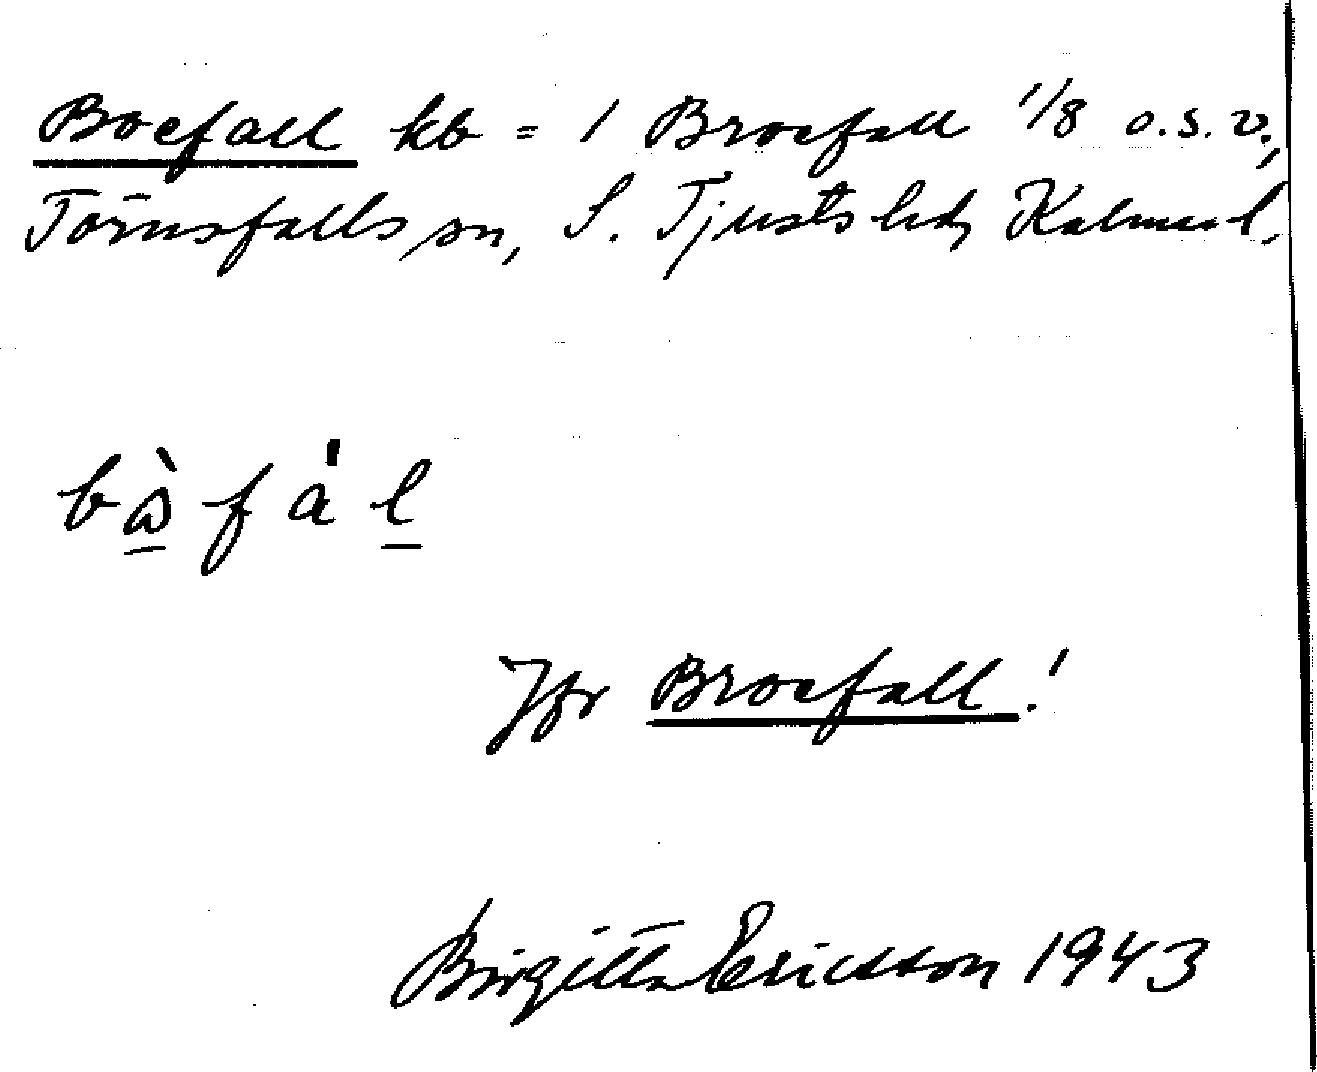 Boefall kb = 1 Broefall 1/8 o.s.v.,
Törnsfalls sn, S. Tjusts hd, Kalmar l.
bàfál
Jfr Broefall!
Birgitta Ericsson 1943